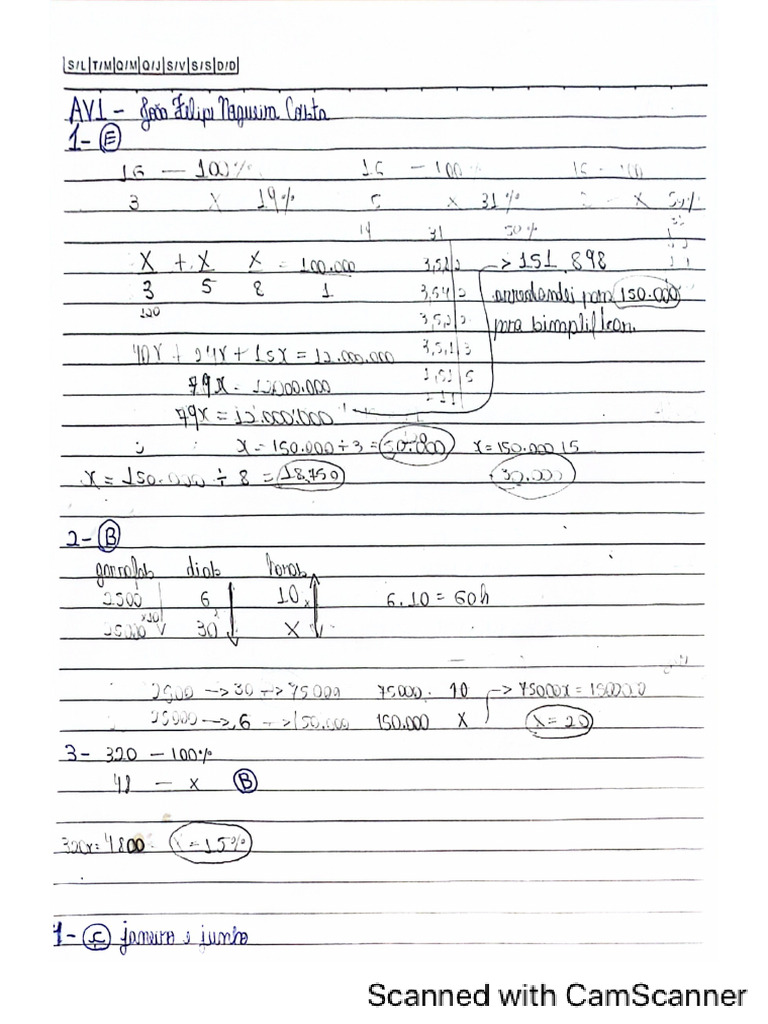 S/L T/M Q/M Q/J S/V S/S D/D
AV1 - João Felipe Nogueira Costa
1- E
16 — 100% 16 — 100% 16 — 100
3 X 19% 5 x 31% — X 50%
19 31 50%
X + X X = 100.000 → 151.898
3 5 8 1 arredondei para 150.000
120 para simplificar.
40x + 24x + 15x = 12.000.000
79x = 12.000.000
79x = 12.000.000
x = 150.000 ÷ 3 = 50.000 x = 150.000 ÷ 5
x = 150.000 ÷ 8 = 18.750 30.000
2- B
garrafas dias horas
2500 6 10 6.10 = 60h
25000 30 X
2500 → 30 → 75000 75000 10 → 75000x = 150000
25000 → 6 → 150.000 150.000 X x = 20
3- 320 — 100%
48 — x B
320x = 4800 x = 15%
1- C janeiro e junho
Scanned with CamScanner